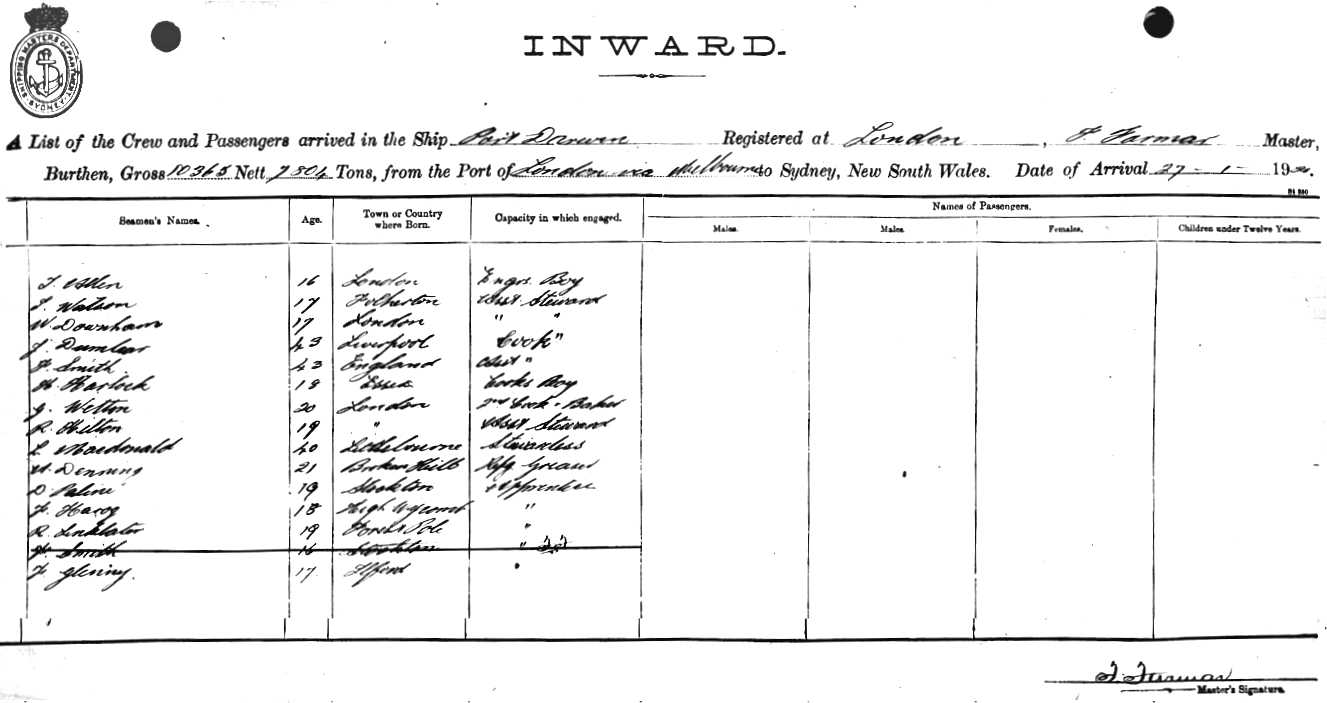 SHIPPING MASTERS DEPARTMENT SYDNEY
INWARD.
A List of the Crew and Passengers arrived in the Ship Port Darwin Registered at London, F. Farmar Master,
Burthen, Gross 10365 Nett Tons, from the Port of London via Melbourne to Sydney, New South Wales. Date of Arrival 27-1-19
Seamen's Names. Age. Town or Country where Born. Capacity in which engaged. Names of Passengers.
Males. Males. Females. Children under Twelve Years.
16 London Engrs. Boy
Watson 17 Asst Steward
W. Downham 17 London " "
J. Dunbar 43 Liverpool Cook "
F. Smith 43 England Asst "
H. Harlock 18 Essex Cooks Boy
20 London 2nd Cook & Baker
R. Hilton 19 " Asst Steward
L. Macdonald 40 Stewardess
Denning 21 Broken Hill Rfg Greaser
D. 19 Stockton Apprentice
18 High Wycomb "
R. Linklater 19 "
Smith 16 Stockton "
F. Glenny. 17 Ilford
F. Farmar
Master's Signature.